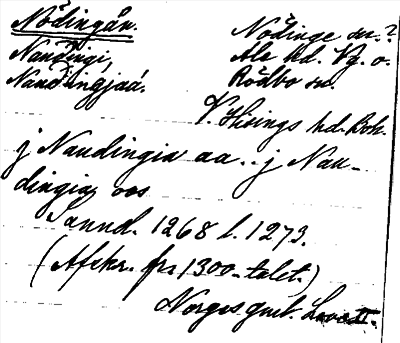 Nödingån.
Nödinge sn.?
Naudingi,
Ale hd. Vg. o.
Naudingjaá.
Rödbo sn.
V. Hisings hd. Boh.
j Naudingia aa.. j Nau-
dingia, oos
sannol. 1268 l. 1273.
(Afskr. fr. 1300-talet.)
Norges gml. Love II.